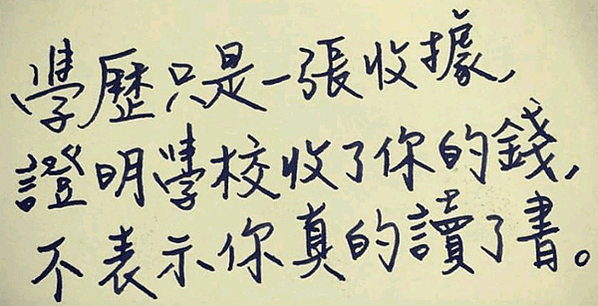 學歷只是一張收據,
證明學校收了你的錢,
不表示你真的讀了書。